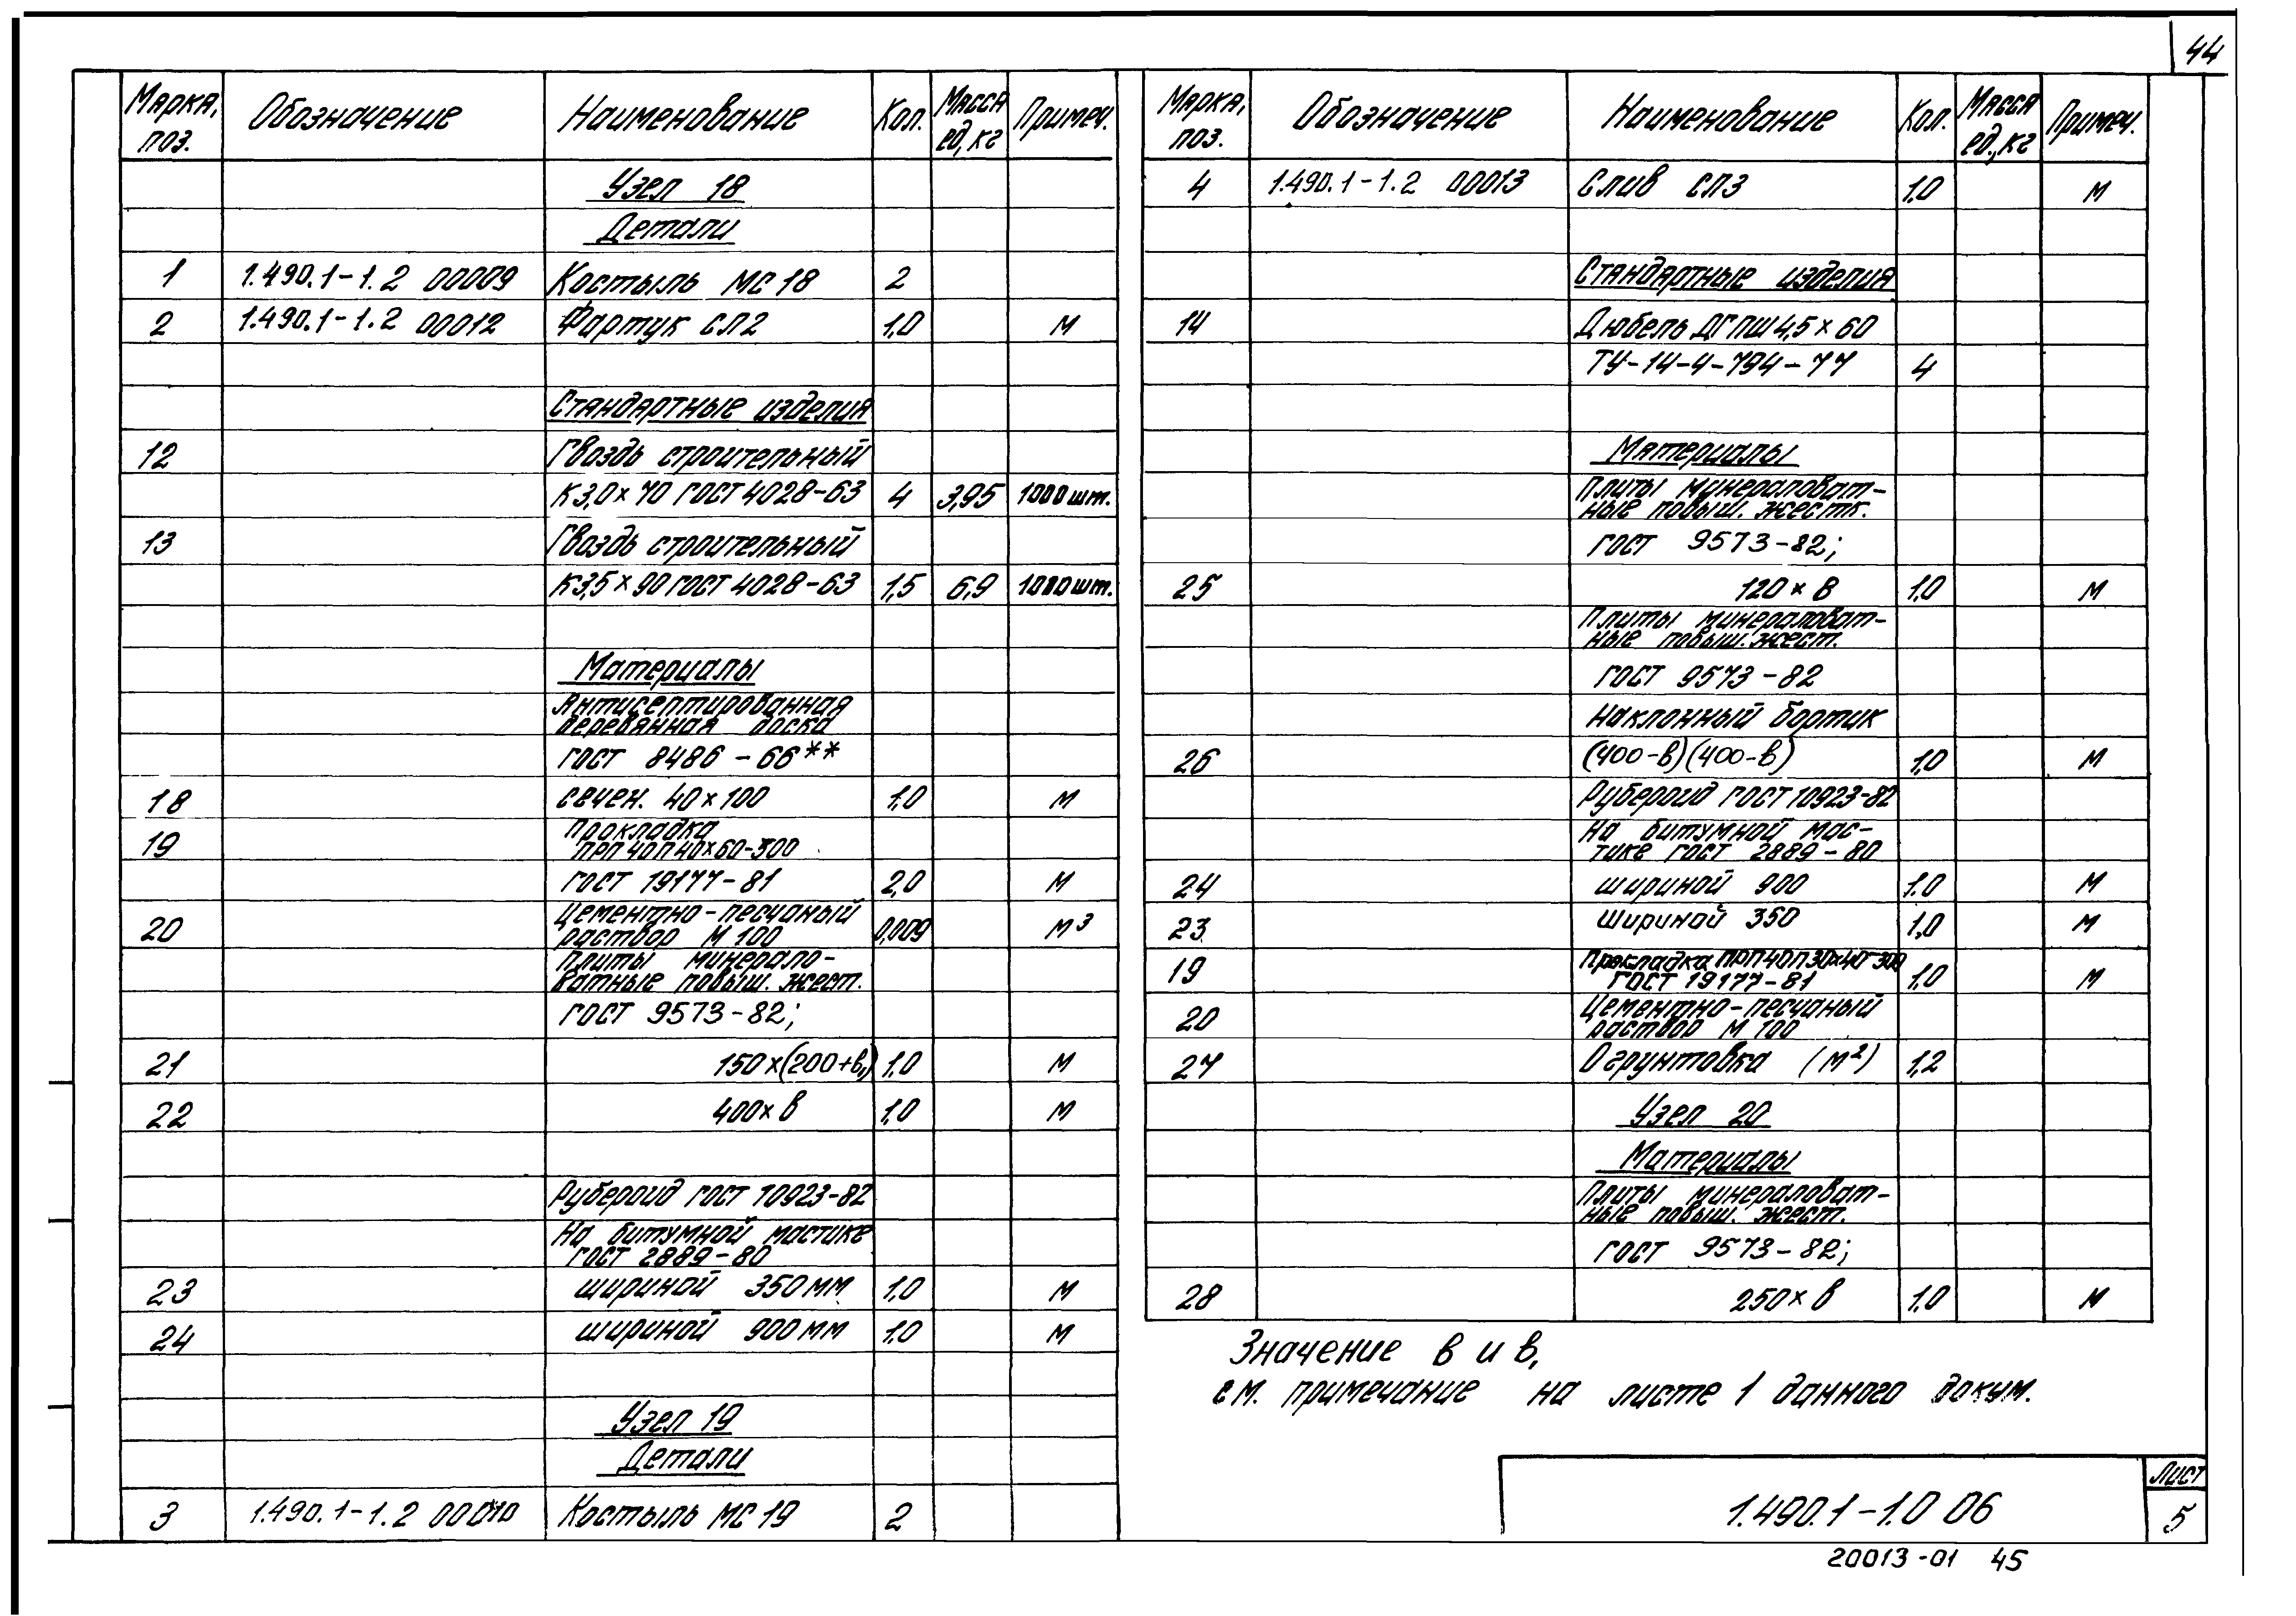 44
Марка, поз. Обозначение Наименование Кол. Масса ед, кг Примеч.
Узел 18
Детали
1 1.490.1-1.2 00009 Костыль МС 18 2
2 1.490.1-1.2 00012 Фартук СЛ2 1,0 М
Стандартные изделия
12 Гвоздь строительный
К3,0×70 ГОСТ 4028-63 4 3,95 1000 шт.
13 Гвоздь строительный
К3,5×90 ГОСТ 4028-63 1,5 6,9 1000 шт.
Материалы
Антисептированная
деревянная доска
ГОСТ 8486-66**
18 сечен. 40×100 1,0 М
19 Прокладка
ПРП 40П 40×60-300
ГОСТ 19177-81 2,0 М
Цементно-песчаный
20 раствор М 100 0,009 М³
Плиты минерало-
ватные повыш. жест.
ГОСТ 9573-82;
21 150×(200+в₁) 1,0 М
22 400×в 1,0 М
Рубероид ГОСТ 10923-82
На битумной мастике
ГОСТ 2889-80
23 шириной 350 мм 1,0 М
24 шириной 900 мм 1,0 М
Узел 19
Детали
3 1.490.1-1.2 00010 Костыль МС 19 2
Марка, поз. Обозначение Наименование Кол. Масса ед., кг Примеч.
4 1.490.1-1.2 00013 Слив СЛ3 1,0 М
Стандартные изделия
14 Дюбель ДГПШ 4,5×60
ТУ-14-4-794-77 4
Материалы
Плиты минераловат-
ные повыш. жестк.
ГОСТ 9573-82;
25 120×в 1,0 М
Плиты минераловат-
ные повыш. жест.
ГОСТ 9573-82
Наклонный бортик
26 (400-в)(400-в) 1,0 М
Рубероид ГОСТ 10923-82
На битумной мас-
тике ГОСТ 2889-80
24 шириной 900 1,0 М
23 шириной 350 1,0 М
Прокладка ПРП40П30×40-300
19 ГОСТ 19177-81 1,0 М
Цементно-песчаный
20 раствор М 100
27 Огрунтовка (м²) 1,2
Узел 20
Материалы
Плиты минераловат-
ные повыш. жест.
ГОСТ 9573-82;
28 250×в 1,0 М
Значение в и в₁
см. примечание на листе 1 данного докум.
1.490.1-1.0 06
Лист
5
20013-01 45